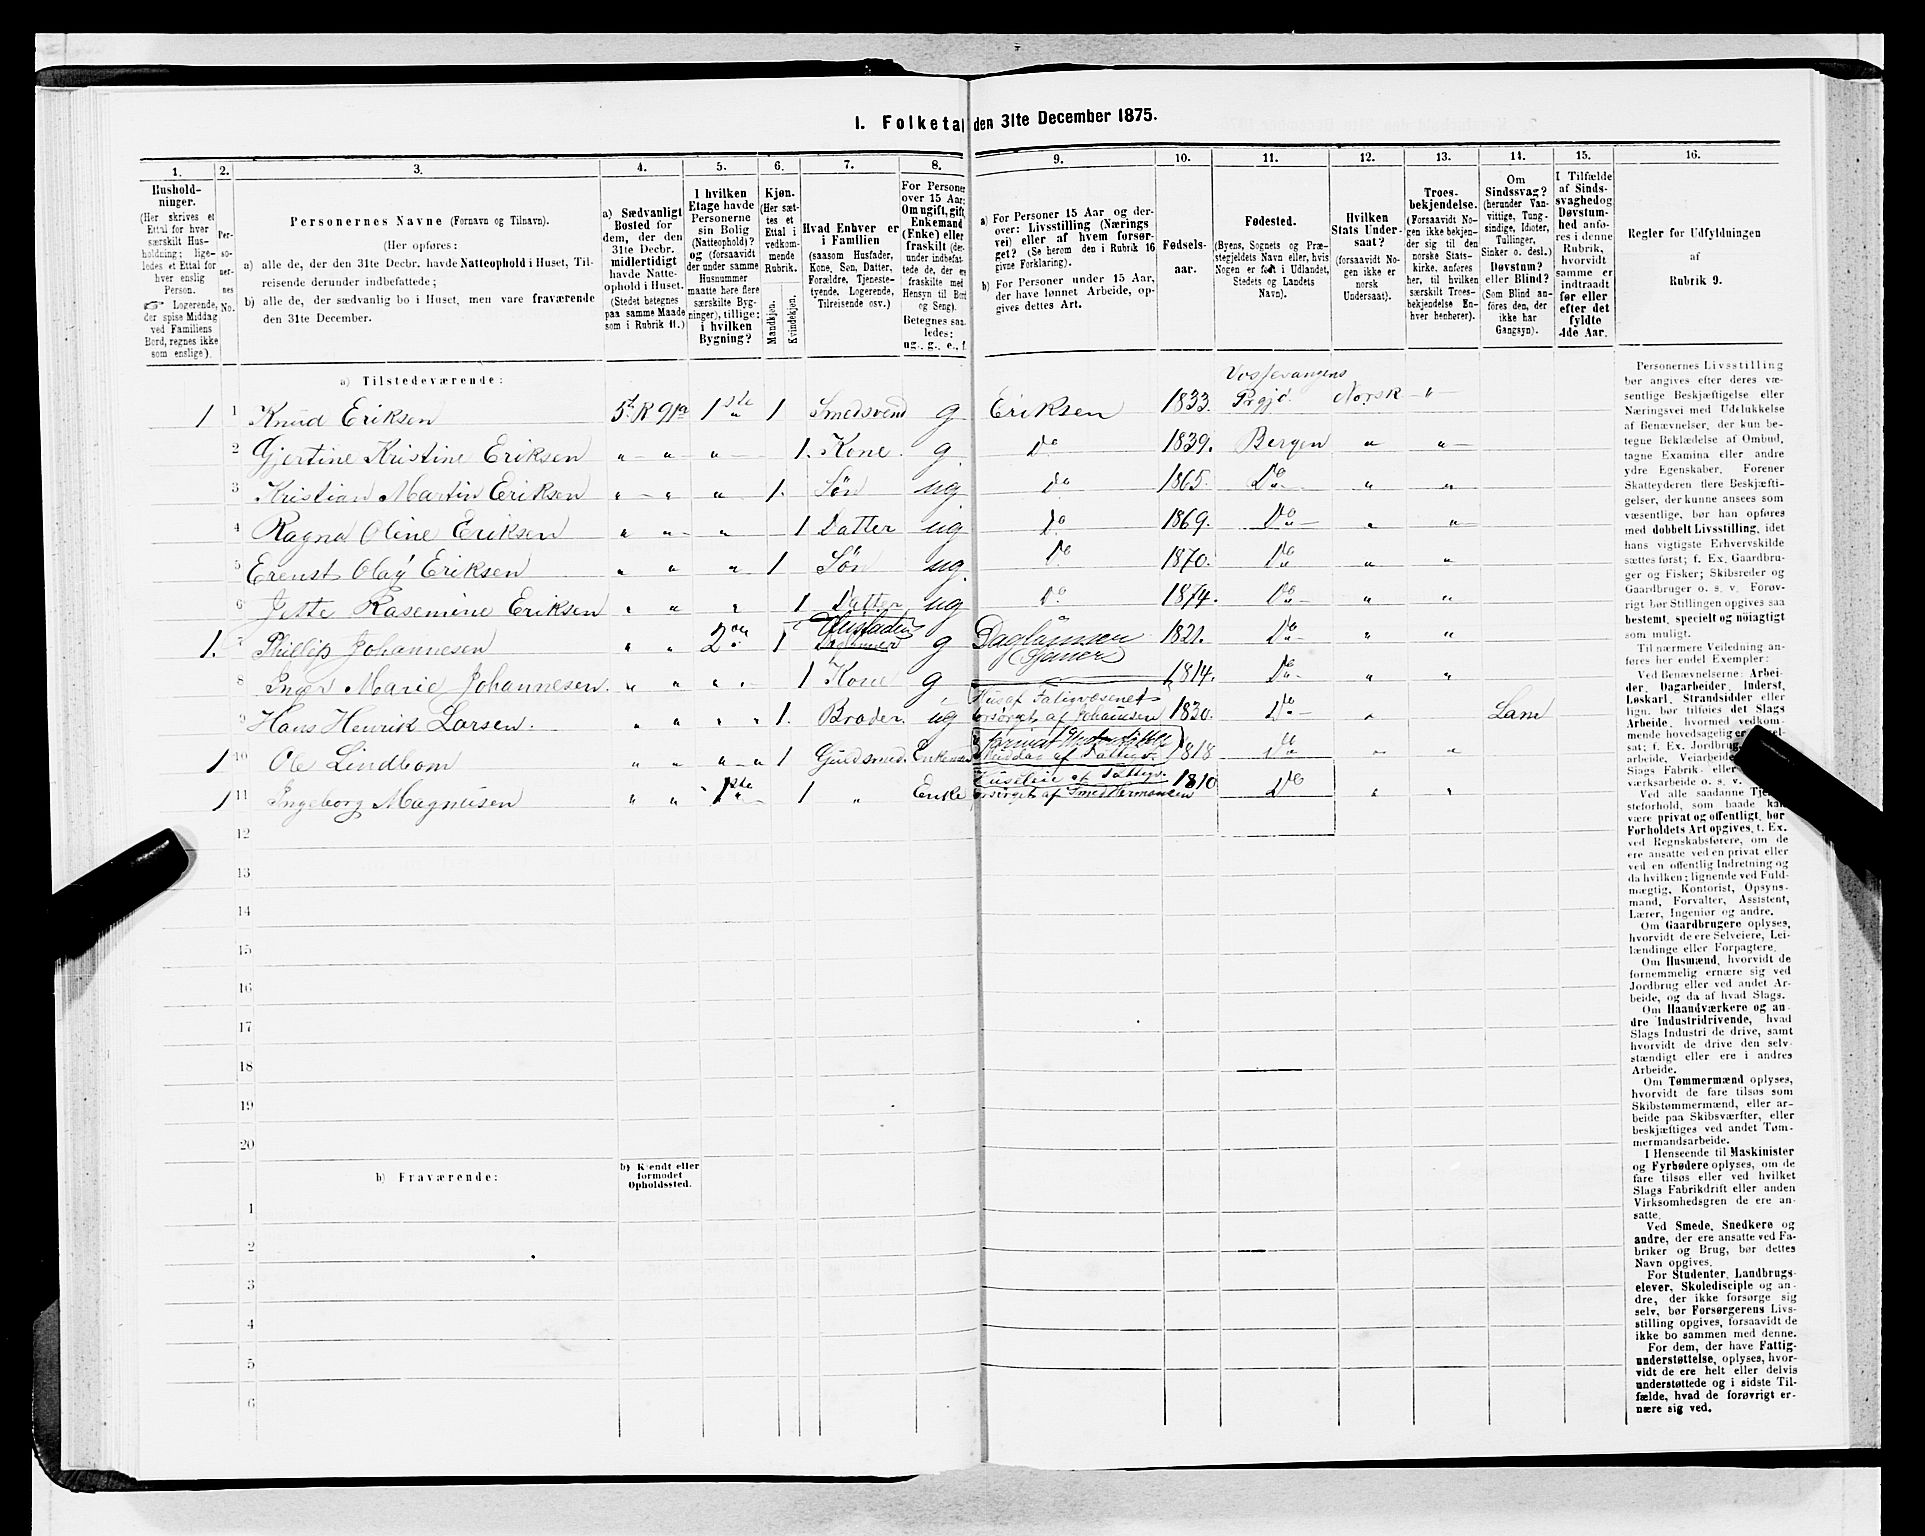 I. Folketal den 31te December 1875.
1. 2. 3. 4. 5. 6. 7. 8. 9. 10. 11. 12. 13. 14. 15. 16.
Hushold-
ninger.
(Her skrives et
Ettal for hver
særskilt Hus-
holdning; lige-
ledes et Ettal for
hver enslig
Person.
☞ Logerende,
der spise Middag
ved Familiens
Bord, regnes ikke
som enslige).
Per-
so-
ner-
nes
No.
Personernes Navne (Fornavn og Tilnavn).
(Her opføres:
a) alle de, der den 31te Decbr. havde Natteophold i Huset, Til-
reisende derunder indbefattede;
b) alle de, der sædvanlig bo i Huset, men vare fraværende
den 31te December.
a) Sædvanligt
Bosted for
dem, der den
31te Decbr.
midlertidigt
havde Natte-
ophold i Huset.
(Stedet betegnes
paa samme Maade
som i Rubrik 11.)
I hvilken
Etage havde
Personerne
sin Bolig
(Natteophold)?
og (forsaavidt
der under samme
Husnummer
maatte here flere
særskilte Byg-
ninger), tillige:
i hvilken
Bygning?
Kjøn.
(Her sæt-
tes et
Ettal i
vedkom-
mende
Rubrik.
Mandkjøn.
Kvindekjøn.
Hvad Enhver er
i Familien
(saasom Husfader,
Kone, Søn, Datter,
Forældre, Tjeneste-
tyende, Logerende,
Tilreisende osv.)
For Personer
over 15 Aar:
Om ugift, gift,
Enkemand
(Enke) eller
fraskilt (der-
under indbefat-
tede de, der ere
fraskilte med
Hensyn til Bord
og Seng).
Betegnes saa-
ledes:
ug., g., e., f.
a) For Personer 15 Aar og der-
over: Livsstilling (Nærings
vei) eller af hvem forsør-
get? (Se herom den i Rubrik 16
givne Forklaring).
b) For Personer under 15 Aar,
der have lønnet Arbeide, op-
gives dettes Art.
Fødsels-
aar.
Fødested.
(Byens, Sognets og Præ-
stegjeldets Navn eller, hvis
Nogen er født i Udlandet,
Stedets og Landets
Navn).
Hvilken
Stats Under-
saat?
(forsaavidt No-
gen ikke er
norsk
Undersaat).
Troes-
bekjendelse.
(Forsaavidt No-
gen ikke bekjen-
der sig til den
norske Stats-
kirke, anføres
her, til hvilken
særskilt Troes-
bekjendelse En-
hver henhører).
Om
Sindssvag?
(herunder Van-
vittige, Tung-
sindige, Idioter,
Tullinger,
Sinker o. desl.)
Døvstum?
eller Blind?
(Som Blind an-
føres den, der
ikke har
Gangsyn).
I Tilfælde
af Sinds-
svaghed og
Døvstum-
hed anfø-
res i denne
Rubrik,
hvorvidt
samme er
indtraadt
før eller
efter det
fyldte
4de Aar.
Regler for Udfyldningen
af
Rubrik 9.
a) Tilstedeværende:
Vossevangens
1 1 Knud Eriksen 5. R 91a 1ste 1 Smedsvend g Eriksen 1833. Prgjd. Norsk "
2 Gjertine Kristine Eriksen " " " 1. Kone g. Do 1839. Bergen " "
3 Kristian Martin Eriksen " " " 1. Søn ug. Do 1865. Do " "
4 Ragna Oline Eriksen " " " 1 Datter ug Do 1869. Do " "
5 Erenst Olaf Eriksen " " " 1 Søn ug. Do 1870. Do " "
6 Jette Rasemine Eriksen " " " 1 Datter ug Do 1874. Do " "
1. 7 Phillip Johannesen " " 2 1 g Daglønner 1821. Do " "
8 Inger Marie Johannesen. " " " 1 Kone g 1814. Do " "
9 Hans Henrik Larsen. " " " 1. Broder. ug forsørget af Johannsen 1830. Do " Lam
1 10 Ole Lindbom " " " 1 Guldsmed. Enkemand Middag af Fattigv. 1818 Do " "
1 11 Ingeborg Magnusen " " 1ste 1 " Enke forsørget af Smed Hermansen 1810 Do " "
12
13
14
15
16
17
18
19
20
b) Fraværende:
b) Kjendt eller
formodet
Opholdssted.
1
2
3
4
5
6
Personernes Livsstilling
bør angives efter deres væ-
sentlige Beskjæftigelse eller
Næringsvei med Udelukkelse
af Benævnelser, der kun be-
tegne Beklædelse af Ombud,
tagne Examina eller andre
ydre Egenskaber. Forener
Skatteyderen flere Beskjæfti-
gelser, der kunne ansees som
væsentlige, bør han opføres
med dobbelt Livsstilling, idet
hans vigtigste Erhvervskilde
sættes først; f. Ex. Gaardbru-
ger og Fisker; Skibsreder og
Gaardbruger o. s. v. Forøv-
rigt bør Stillingen opgives saa
bestemt, specielt og nøiagtigt
som muligt.
Til nærmere Veiledning an-
føres her endel Exempler:
Ved Benævnelserne: Arbei-
der, Dagarbeider, Inderst,
Løskarl, Strandsidder eller
lign. bør tilføies det Slags
Arbeide, hvormed vedkom-
mende hovedsagelig er
sat; f. Ex. Jordbrug
arbeide, Veiarbeide
Slags Fabrik- eller
værksarbeide o. s. v.
Ved alle saadanne Tje-
steforhold, som baade kan
være privat og offentligt, bør
Forholdets Art opgives, t. Ex.
ved Regnskabsførere, om de
ere ansatte ved en privat eller
ved en offentlig Indretning og
da hvilken; lignende ved Fuld-
mægtig, Kontorist, Opsyns-
mand, Forvalter, Assistent,
Lærer, Ingeniør og andre.
Om Gaardbrugere oplyses,
hvorvidt de ere Selveiere, Lei-
lændinge eller Forpagtere.
Om Husmænd, hvorvidt de
fornemmelig ernære sig ved
Jordbrug eller ved andet Ar-
beide, og da af hvad Slags.
Om Haandværkere og an-
dre Industridrivende, hvad
Slags Industri de drive, samt
hvorvidt de drive den selv-
stændigt eller ere i andres
Arbeide.
Om Tømmermænd oplyses,
hvorvidt de fare tilsøs som
Skibstømmermænd, eller ar-
beide paa Skibsværfter, eller
beskjæftiges ved andet Tøm-
mermandsarbeide.
I Henseende til Maskinister
og Fyrbødere oplyses, om de
fare tilsøs eller ved hvilket
Slags Fabrikdrift eller anden
Virksomhedsgren de ere an-
satte.
Ved Smede, Snedkere og
andre, der ere ansatte ved Fa-
briker og Brug, bør dettes
Navn opgives.
For Studenter, Landbrugs-
elever, Skoledisciple og an-
dre, der ikke forsørge sig
selv, bør Forsørgerens Livs-
stilling opgives, forsaavidt de
ikke bo sammen med denne.
For dem, der have Fattig-
understøttelse, oplyses, hvor-
vidt de ere helt eller delvis
understøttede og i sidste Til-
fælde, hvad de forøvrigt er-
nære sig ved.